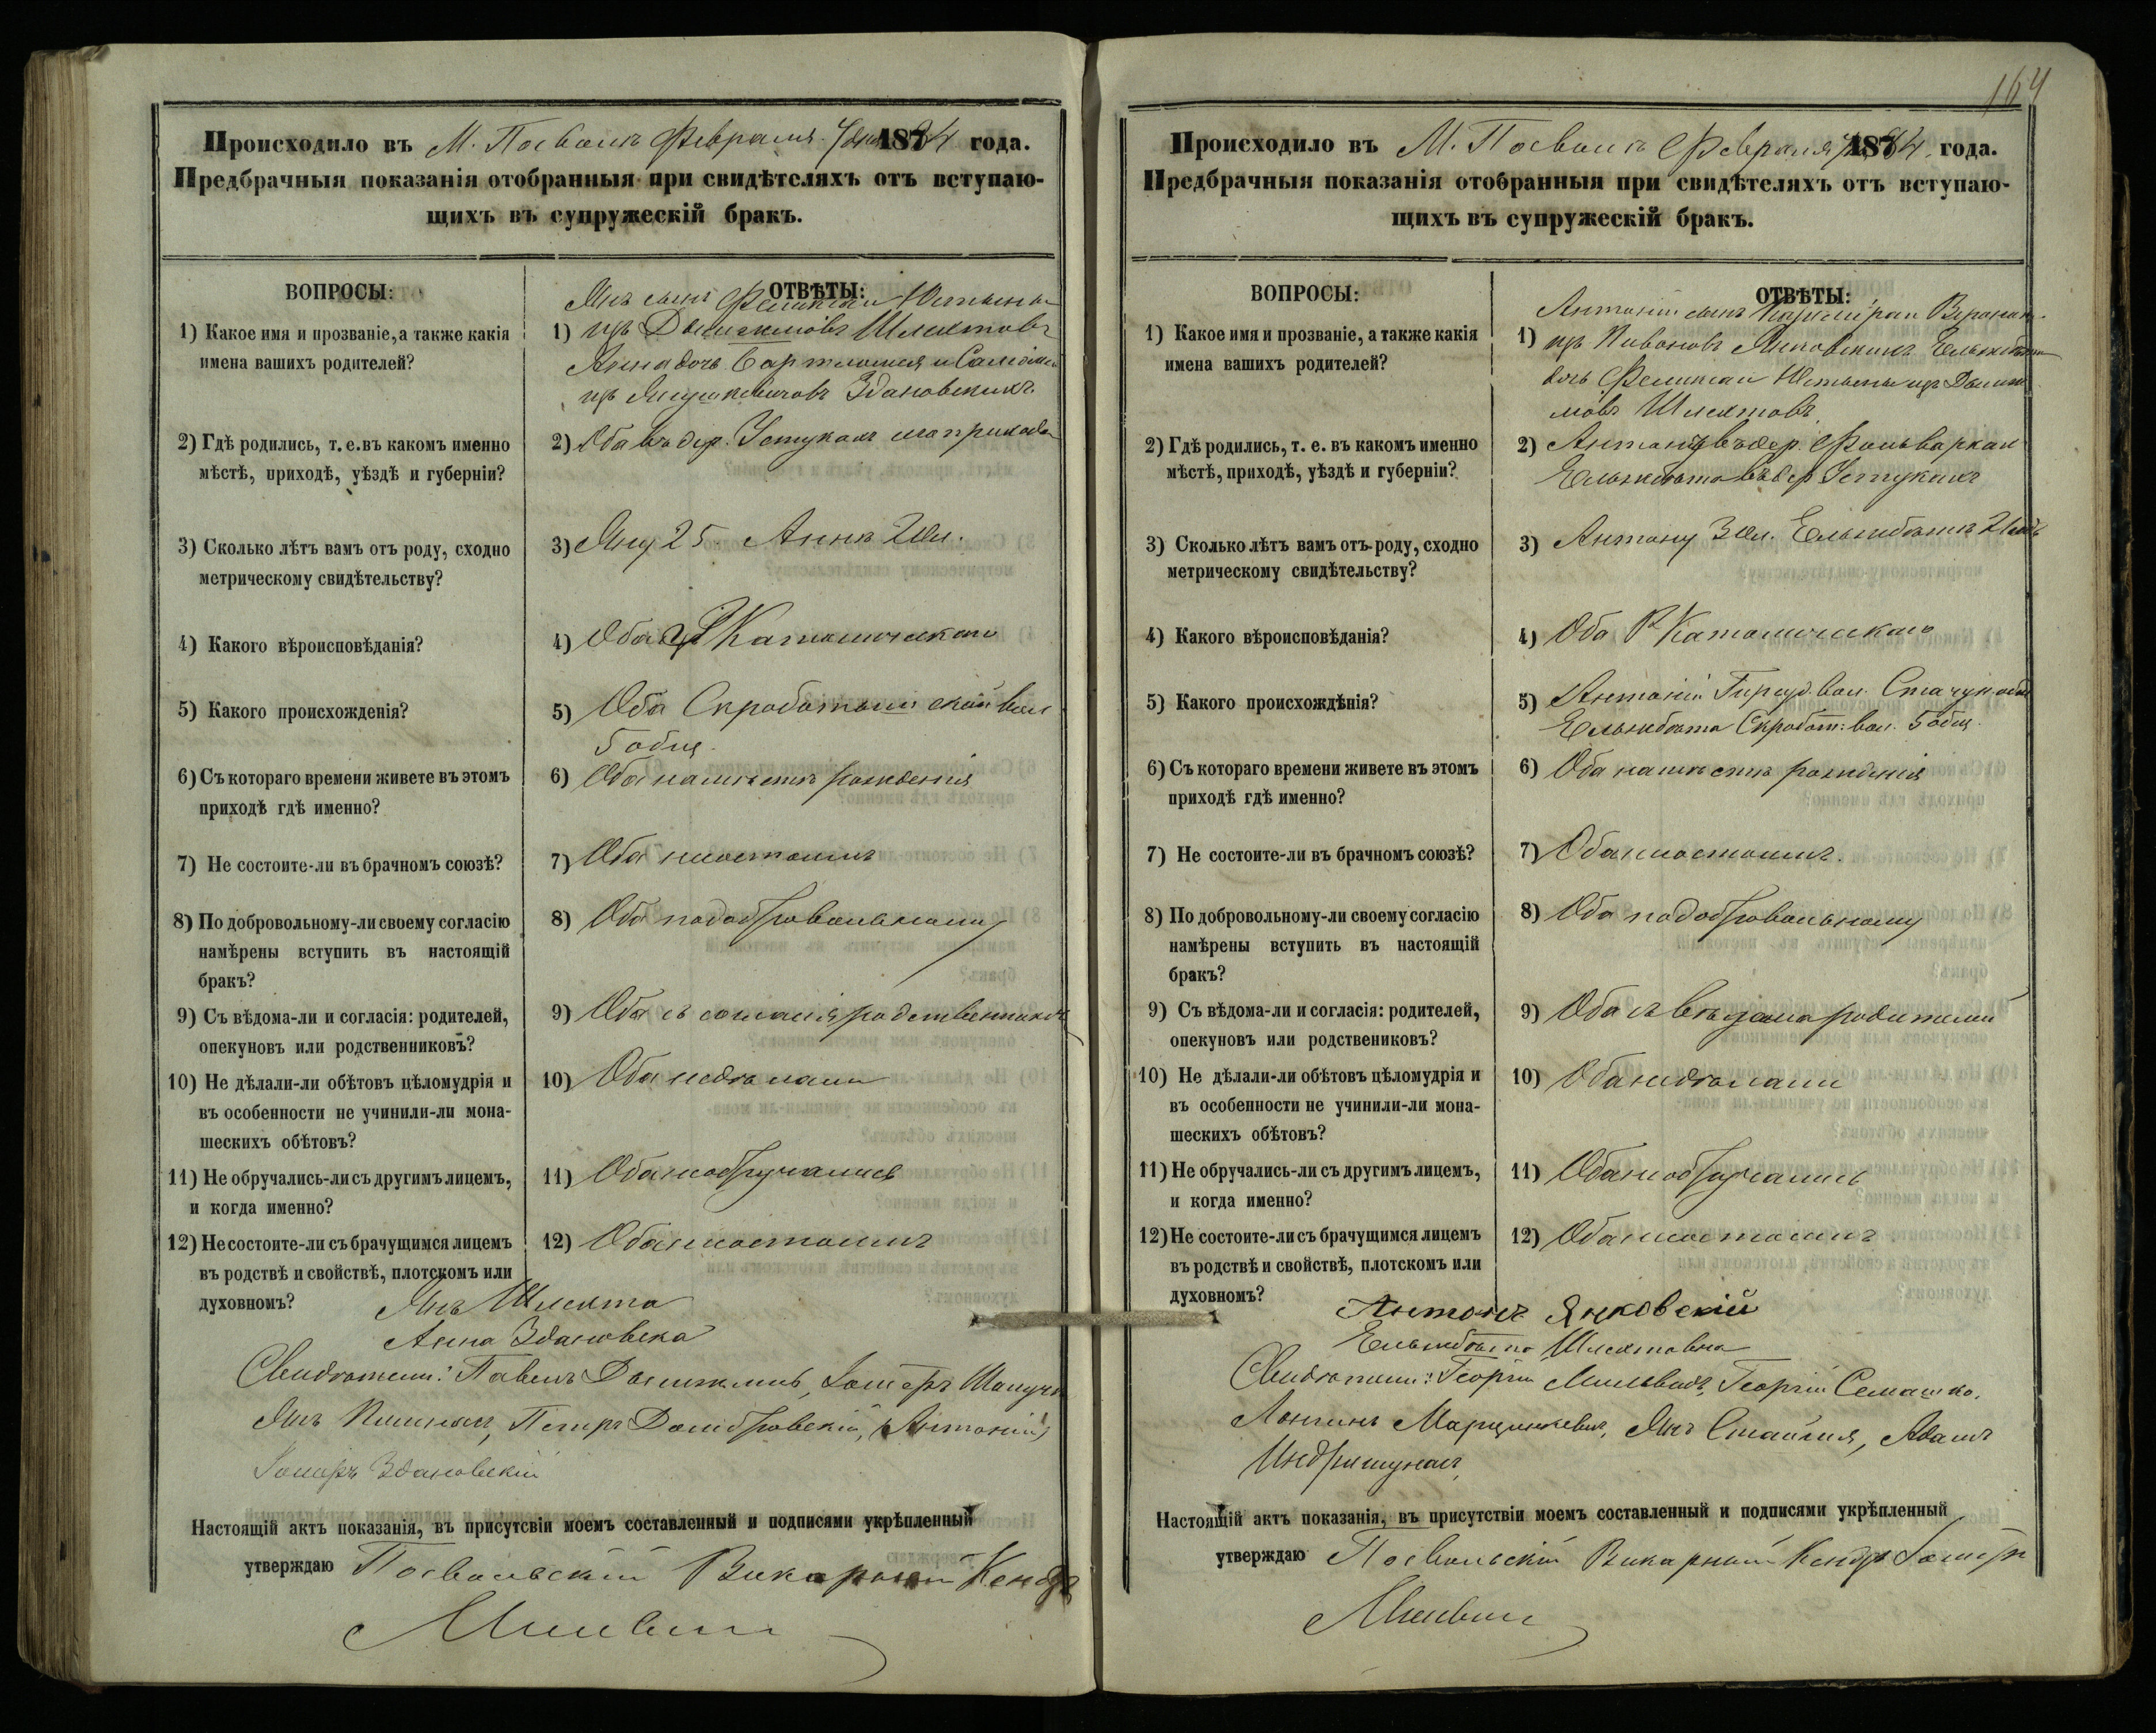 Происходило въ М. Посволь Февраля 7 дня 1884 года.
Предбрачныя показанія отобранныя при свидѣтеляхъ отъ вступаю-
щихъ въ супружескій бракъ.
ВОПРОСЫ:
ОТВѢТЫ:
1) Какое имя и прозваніе, а также какія
имена вашихъ родителей?
1) Янъ сынъ Феликса и Юстыны
изъ Шлехтовъ
Анна дочь Бартломея и
изъ Янушкевичовъ Здановскихъ.
2) Гдѣ родились, т. е. въ какомъ именно
мѣстѣ, приходѣ, уѣздѣ и губерніи?
2) Оба въ дер. Устукахъ прихода
3) Сколько лѣтъ вамъ отъ роду, сходно
метрическому свидѣтельству?
3) Яну 25. Аннѣ 20 л.
4) Какого вѣроисповѣданія?
4) Оба Р Католическаго
5) Какого происхожденія?
5) Оба Скробот вол
общ.
6) Съ котораго времени живете въ этомъ
приходѣ гдѣ именно?
6) Оба на мѣстѣ рожденія
7) Не состоите-ли въ брачномъ союзѣ?
7) Оба несостоимъ
8) По добровольному-ли своему согласію
намѣрены вступить въ настоящій
бракъ?
8) Оба подобровольному
9) Съ вѣдома-ли и согласія: родителей,
опекуновъ или родственниковъ?
9) Оба съ согласія родственниковъ
10) Не дѣлали-ли обѣтовъ цѣломудрія и
въ особенности не учинили-ли мона-
шескихъ обѣтовъ?
10) Оба недѣлали
11) Не обручались-ли съ другимъ лицемъ,
и когда именно?
11) Оба необручались
12) Не состоите-ли съ брачущимся лицемъ
въ родствѣ и свойствѣ, плотскомъ или
духовномъ?
12) Оба несостоимъ
Янъ Шлехта
Анна Здановска
Свидѣтели: Павелъ
Янъ Петръ Домбровскій, Антоній
Здановскій
Настоящій актъ показанія, въ присутсвіи моемъ составленный и подписями укрѣпленный
утверждаю Посвольскій Викарный Ксендзъ
164
Происходило въ М. Посволь Февраля 1884 года.
Предбрачныя показанія отобранныя при свидѣтеляхъ отъ вступаю-
щихъ въ супружескій бракъ.
ВОПРОСЫ:
ОТВѢТЫ:
1) Какое имя и прозваніе, а также какія
имена вашихъ родителей?
1) Антоній сынъ Казиміра и
изъ Ельжбета
дочь Феликса и Юстыны изъ
Шлехтовъ
2) Гдѣ родились, т. е. въ какомъ именно
мѣстѣ, приходѣ, уѣздѣ и губерніи?
2) Антоній въ дер. Фольваркахъ
Ельжбета въ дер Устукахъ
3) Сколько лѣтъ вамъ отъ-роду, сходно
метрическому свидѣтельству?
3) Антону 30 л. Ельжбетѣ
4) Какого вѣроисповѣданія?
4) Оба Р Католическаго
5) Какого происхожденія?
5) Антоній вол.
Ельжбета Скробот: вол. общ.
6) Съ котораго времени живете въ этомъ
приходѣ гдѣ именно?
6) Оба на мѣстѣ рожденія
7) Не состоите-ли въ брачномъ союзѣ?
7) Оба несостоимъ.
8) По добровольному-ли своему согласію
намѣрены вступить въ настоящій
бракъ?
8) Оба подобровольному
9) Съ вѣдома-ли и согласія: родителей,
опекуновъ или родствениковъ?
9) Оба съ вѣдома родителей
10) Не дѣлали-ли обѣтовъ цѣломудрія и
въ особенности не учинили-ли мона-
шескихъ обѣтовъ?
10) Оба недѣлали
11) Не обручались-ли съ другимъ лицемъ,
и когда именно?
11) Оба необручались
12) Не состоите-ли съ брачущимся лицемъ
въ родствѣ и свойствѣ, плотскомъ или
духовномъ?
12) Оба несостоимъ
Антонъ Янковскій
Ельжбета Шлехтовна
Свидѣтели: Георгій Георгій Семашко.
Лонгинъ Марцинкевич, Янъ Адамъ
Настоящій актъ показанія, въ присутствіи моемъ составленный и подписями укрѣпленный
утверждаю Посвольскій Викарный Ксендзъ